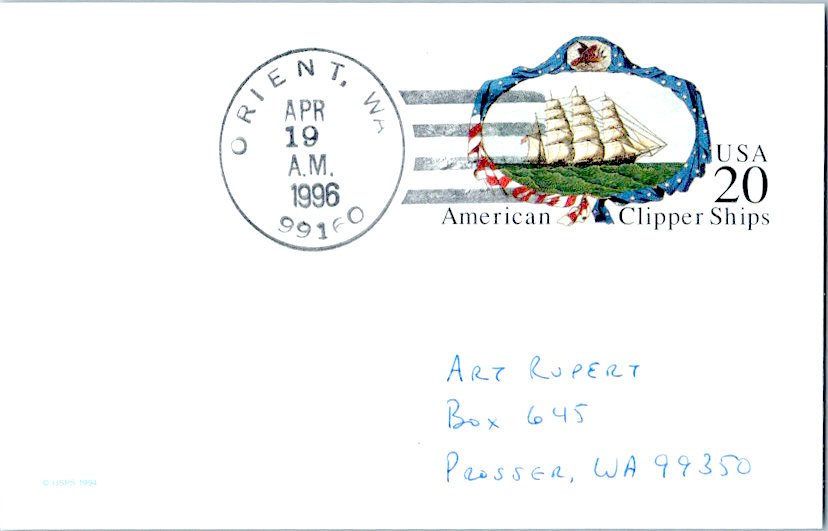 ORIENT, WA
APR
19
A.M.
1996
99160
USA
20
American Clipper Ships
ART RUPERT
BOX 645
PROSSER, WA 99350
© USPS 1994